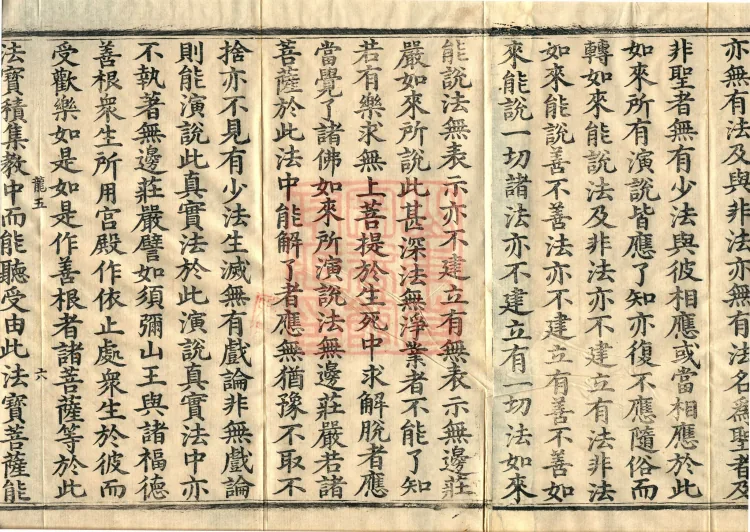 亦無有法及與非法亦無有法名爲聖者及
非聖者無有少法與彼相應或當相應於此
如來所有演說皆應了知亦復不應隨俗而
轉如來能說法及非法亦不建立有法非法
如來能說善不善法亦不建立有善不善如
來能說一切諸法亦不建立有一切法如來
能說法無表示亦不建立有無表示無邊莊
嚴如來所說此甚深法無淨業者不能了知
若有樂求無上菩提於生死中求解脫者應
當覺了諸佛如來所演說法無邊莊嚴若諸
菩薩於此法中能解了者應無猶豫不取不
捨亦不見有少法生滅無有戲論非無戲論
則能演說此真實法於此演說真實法中亦
不執著無邊莊嚴譬如須彌山王與諸福德
善根衆生所用宮殿作依止處衆生於彼而
受歡樂如是如是作善根者諸菩薩等於此
龍五 六
法寶積集教中而能聽受由此法寶菩薩能